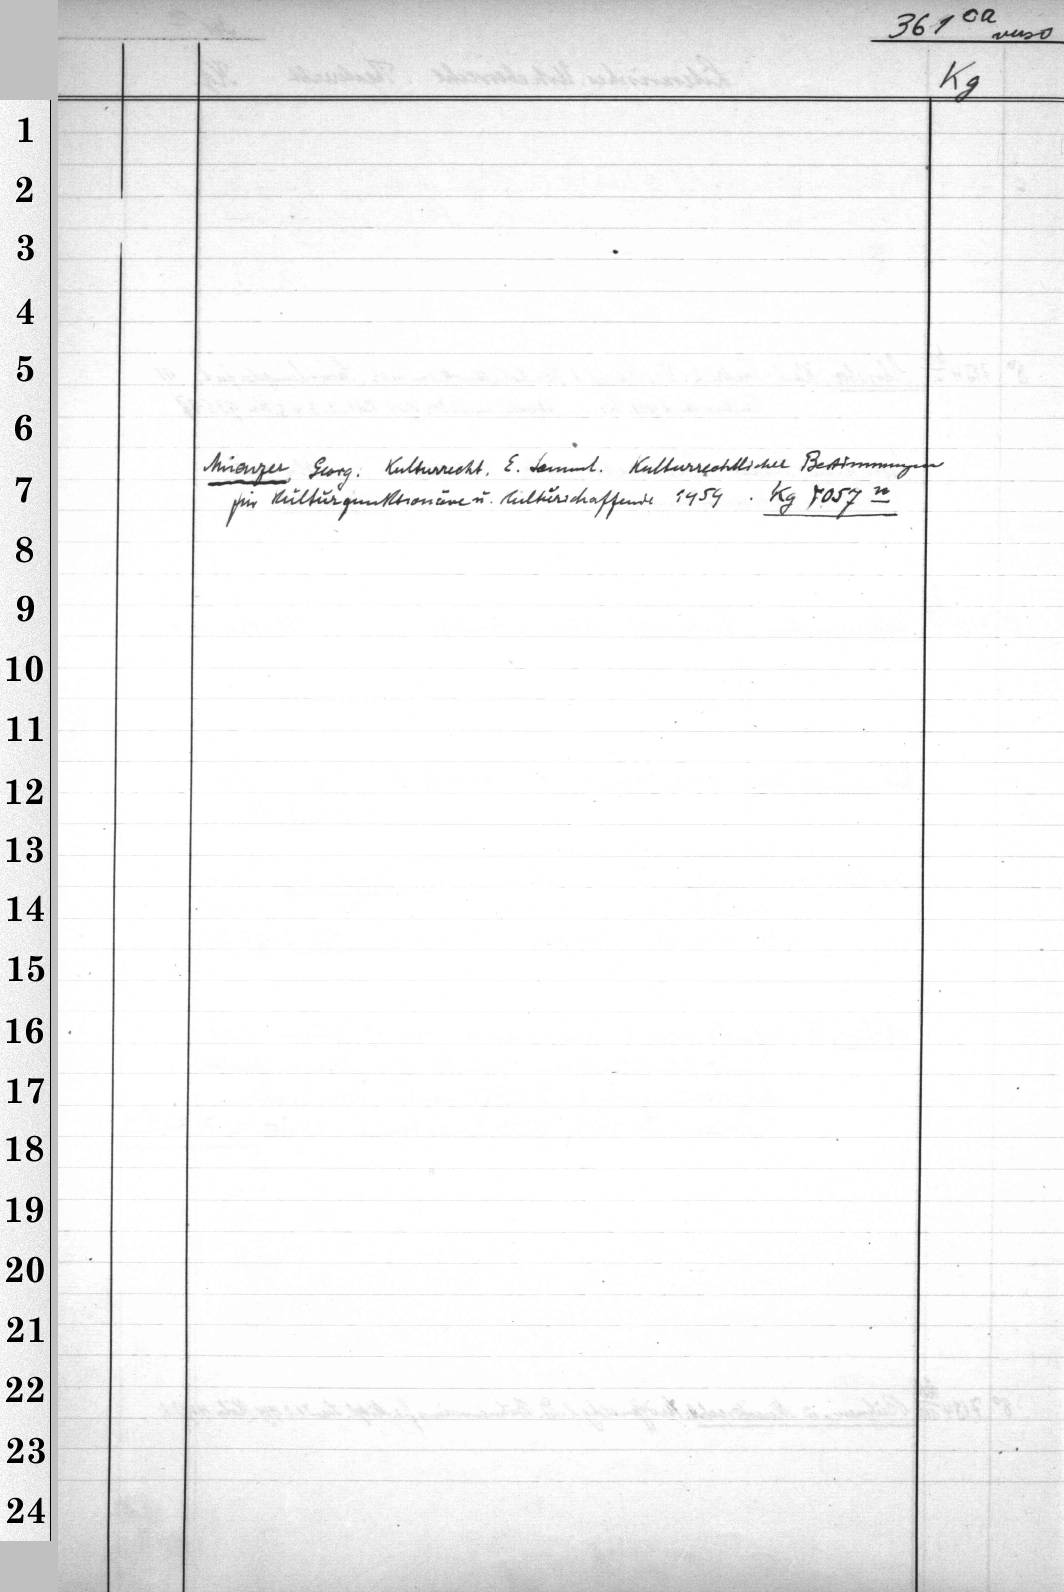 361 ca
verso
Kg
1
2
3
4
5
6
Münzer, Georg. Kulturrecht. E. Samml. Kulturrechtlicher Bestimmungen
7
für Kulturfunktionäre u. Kulturschaffende 1959. Kg 7057 n
8
9
10
11
12
13
14
15
16
17
18
19
20
21
22
23
24